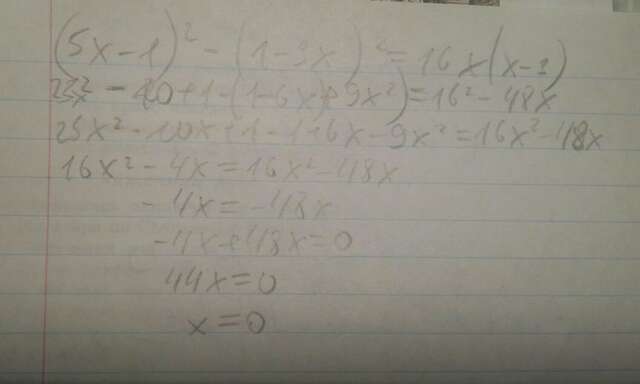 (5x-1)² - (1-3x)² = 16x(x-3)
25x² - 10 + 1 - (1-6x+9x²) = 16² - 48x
25x² - 10x + 1 - 1 + 6x - 9x² = 16x² - 48x
16x² - 4x = 16x² - 48x
-4x = -48x
-4x + 48x = 0
44x = 0
x = 0